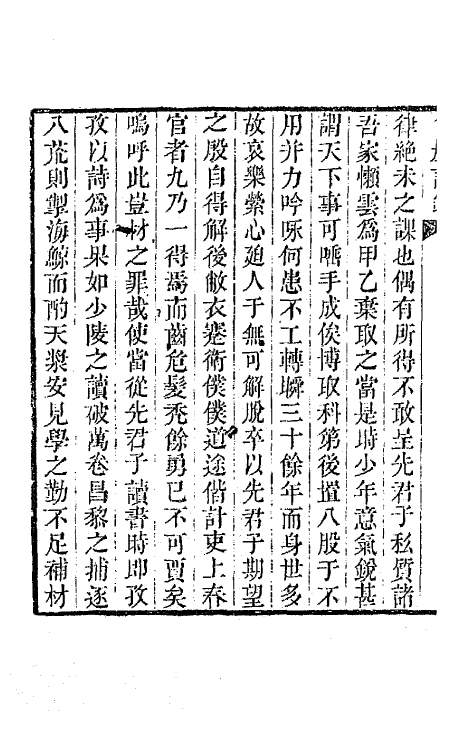 律絕未之課也偶有所得不敢呈先君子私質諸
吾家懶雲爲甲乙棄取之當是時少年意氣銳甚
謂天下事可唾手成俟博取科第後擲八股于不
用并力吟哦何患不工轉瞬三十餘年而身世多
故哀樂縈心迫人于無可解脫卒以先君子期望
之殷自得解後敝衣蹇衛僕僕道途偕計吏上春
官者九乃一得焉而齒危髮禿餘勇已不可賈矣
嗚呼此豈材之罪哉使當從先君子讀書時即孜
孜以詩爲事果如少陵之讀破萬卷昌黎之捕逐
八荒則掣海鯨而酌天漿安見學之勤不足補材